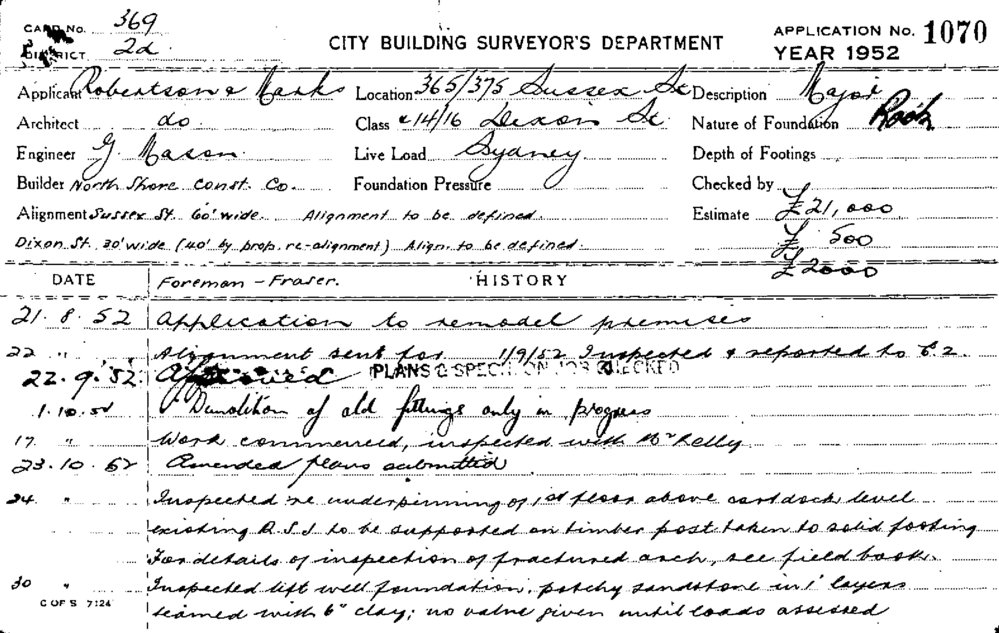 CARD No. 369
DISTRICT 2d
CITY BUILDING SURVEYOR'S DEPARTMENT
APPLICATION No. 1070
YEAR 1952
Applicant Robertson & Marks Location 365/375 Sussex St Description Major
Architect do Class & 14/16 Dixon St. Nature of Foundation Rock
Engineer G Mason Live Load Sydney Depth of Footings
Builder North Shore Const. Co. Foundation Pressure Checked by
Alignment Sussex St. 60' wide. Alignment to be defined. Estimate £21,000
Dixon St. 30' wide (40' by prop. re-alignment) Align. to be defined. £ 500
£2000
DATE Foreman - Fraser. HISTORY
21. 8. 52 Application to remodel premises
22 " " Alignment sent for 1/9/52 Inspected & reported to C.2.
22. 9. '52. Approved PLANS & SPECN ON JOB CHECKED
1. 10. 52 Demolition of old fittings only in progress
17 " Work commenced, inspected with Mr Kelly
23. 10. 52 Amended plans submitted
24. " Inspected re underpinning of 1st floor above cartdock level
existing R.S.J to be supported on timber post taken to solid footing
For details of inspection of fractured arch, see field book.
30 " Inspected lift well foundation, patchy sandstone in 1' layers
seamed with 6" clay; no value given until loads assessed
C OF S 7124